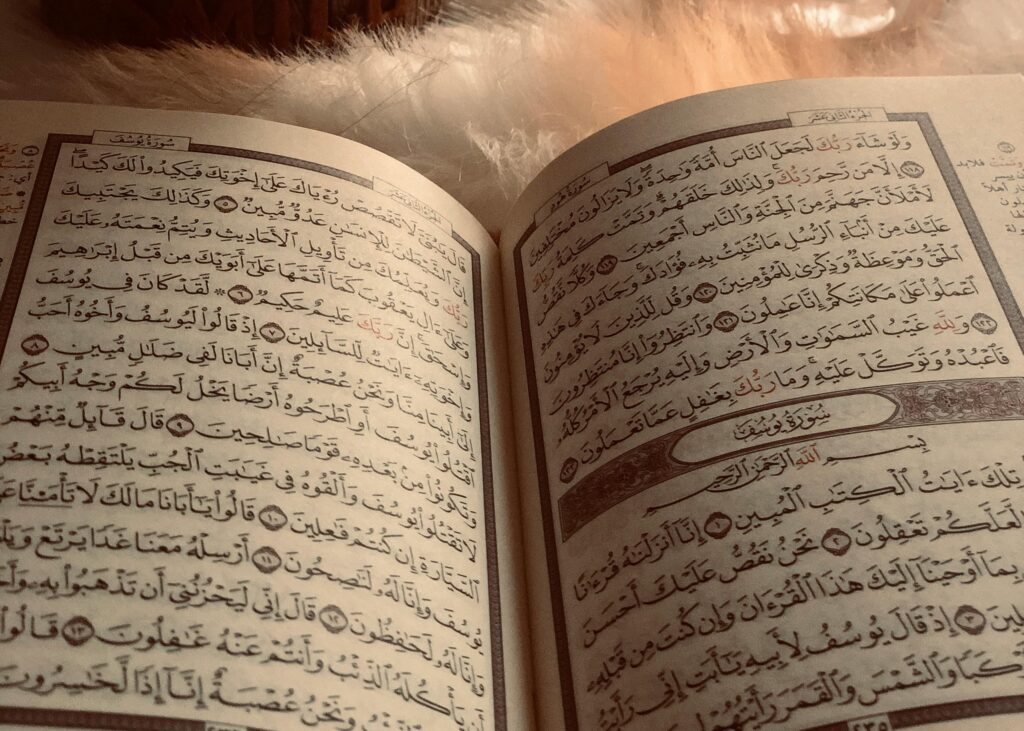 الجزء الثاني عشر
سورة هود
وَلَوْ شَآءَ رَبُّكَ لَجَعَلَ ٱلنَّاسَ أُمَّةً وَٰحِدَةً وَلَا يَزَالُونَ مُخْتَلِفِينَ
١١٨ إِلَّا مَن رَّحِمَ رَبُّكَ وَلِذَٰلِكَ خَلَقَهُمْ وَتَمَّتْ كَلِمَةُ رَبِّكَ
لَأَمْلَأَنَّ جَهَنَّمَ مِنَ ٱلْجِنَّةِ وَٱلنَّاسِ أَجْمَعِينَ ١١٩ وَكُلًّا نَّقُصُّ
عَلَيْكَ مِنْ أَنۢبَآءِ ٱلرُّسُلِ مَا نُثَبِّتُ بِهِۦ فُؤَادَكَ وَجَآءَكَ فِى هَٰذِهِ
ٱلْحَقُّ وَمَوْعِظَةٌ وَذِكْرَىٰ لِلْمُؤْمِنِينَ ١٢٠ وَقُل لِّلَّذِينَ لَا يُؤْمِنُونَ
ٱعْمَلُوا۟ عَلَىٰ مَكَانَتِكُمْ إِنَّا عَٰمِلُونَ ١٢١ وَٱنتَظِرُوٓا۟ إِنَّا مُنتَظِرُونَ
١٢٢ وَلِلَّهِ غَيْبُ ٱلسَّمَٰوَٰتِ وَٱلْأَرْضِ وَإِلَيْهِ يُرْجَعُ ٱلْأَمْرُ كُلُّهُۥ
فَٱعْبُدْهُ وَتَوَكَّلْ عَلَيْهِ وَمَا رَبُّكَ بِغَٰفِلٍ عَمَّا تَعْمَلُونَ ١٢٣
سُورَةُ يُوسُفَ
بِسْمِ ٱللَّهِ ٱلرَّحْمَٰنِ ٱلرَّحِيمِ
تِلْكَ ءَايَٰتُ ٱلْكِتَٰبِ ٱلْمُبِينِ ١ إِنَّآ أَنزَلْنَٰهُ قُرْءَٰنًا
لَّعَلَّكُمْ تَعْقِلُونَ ٢ نَحْنُ نَقُصُّ عَلَيْكَ أَحْسَنَ
بِمَآ أَوْحَيْنَآ إِلَيْكَ هَٰذَا ٱلْقُرْءَانَ وَإِن كُنتَ مِن قَبْلِهِۦ
٣ إِذْ قَالَ يُوسُفُ لِأَبِيهِ يَٰٓأَبَتِ إِنِّى رَأَيْتُ
وَٱلشَّمْسَ وَٱلْقَمَرَ رَأَيْتُهُمْ
سورة يوسف
الجزء الثاني عشر
قَالَ يَٰبُنَىَّ لَا تَقْصُصْ رُءْيَاكَ عَلَىٰٓ إِخْوَتِكَ فَيَكِيدُوا۟ لَكَ كَيْدًا
إِنَّ ٱلشَّيْطَٰنَ لِلْإِنسَٰنِ عَدُوٌّ مُّبِينٌ ٥ وَكَذَٰلِكَ يَجْتَبِيكَ
رَبُّكَ وَيُعَلِّمُكَ مِن تَأْوِيلِ ٱلْأَحَادِيثِ وَيُتِمُّ نِعْمَتَهُۥ عَلَيْكَ
وَعَلَىٰٓ ءَالِ يَعْقُوبَ كَمَآ أَتَمَّهَا عَلَىٰٓ أَبَوَيْكَ مِن قَبْلُ إِبْرَٰهِيمَ
وَإِسْحَٰقَ إِنَّ رَبَّكَ عَلِيمٌ حَكِيمٌ ٦ ۞ لَّقَدْ كَانَ فِى يُوسُفَ
وَإِخْوَتِهِۦٓ ءَايَٰتٌ لِّلسَّآئِلِينَ ٧ إِذْ قَالُوا۟ لَيُوسُفُ وَأَخُوهُ أَحَبُّ
إِلَىٰٓ أَبِينَا مِنَّا وَنَحْنُ عُصْبَةٌ إِنَّ أَبَانَا لَفِى ضَلَٰلٍ مُّبِينٍ ٨
ٱقْتُلُوا۟ يُوسُفَ أَوِ ٱطْرَحُوهُ أَرْضًا يَخْلُ لَكُمْ وَجْهُ أَبِيكُمْ
وَتَكُونُوا۟ مِنۢ بَعْدِهِۦ قَوْمًا صَٰلِحِينَ ٩ قَالَ قَآئِلٌ مِّنْهُمْ
لَا تَقْتُلُوا۟ يُوسُفَ وَأَلْقُوهُ فِى غَيَٰبَتِ ٱلْجُبِّ يَلْتَقِطْهُ بَعْضُ
ٱلسَّيَّارَةِ إِن كُنتُمْ فَٰعِلِينَ ١٠ قَالُوا۟ يَٰٓأَبَانَا مَا لَكَ لَا تَأْمَ۫نَّا
يُوسُفَ وَإِنَّا لَهُۥ لَنَٰصِحُونَ ١١ أَرْسِلْهُ مَعَنَا غَدًا يَرْتَعْ
وَإِنَّا لَهُۥ لَحَٰفِظُونَ ١٢ قَالَ إِنِّى لَيَحْزُنُنِىٓ أَن تَذْهَبُوا۟ بِهِۦ
أَن يَأْكُلَهُ ٱلذِّئْبُ وَأَنتُمْ عَنْهُ غَٰفِلُونَ ١٣ قَالُوا۟
وَنَحْنُ عُصْبَةٌ إِنَّآ إِذًا لَّخَٰسِرُونَ